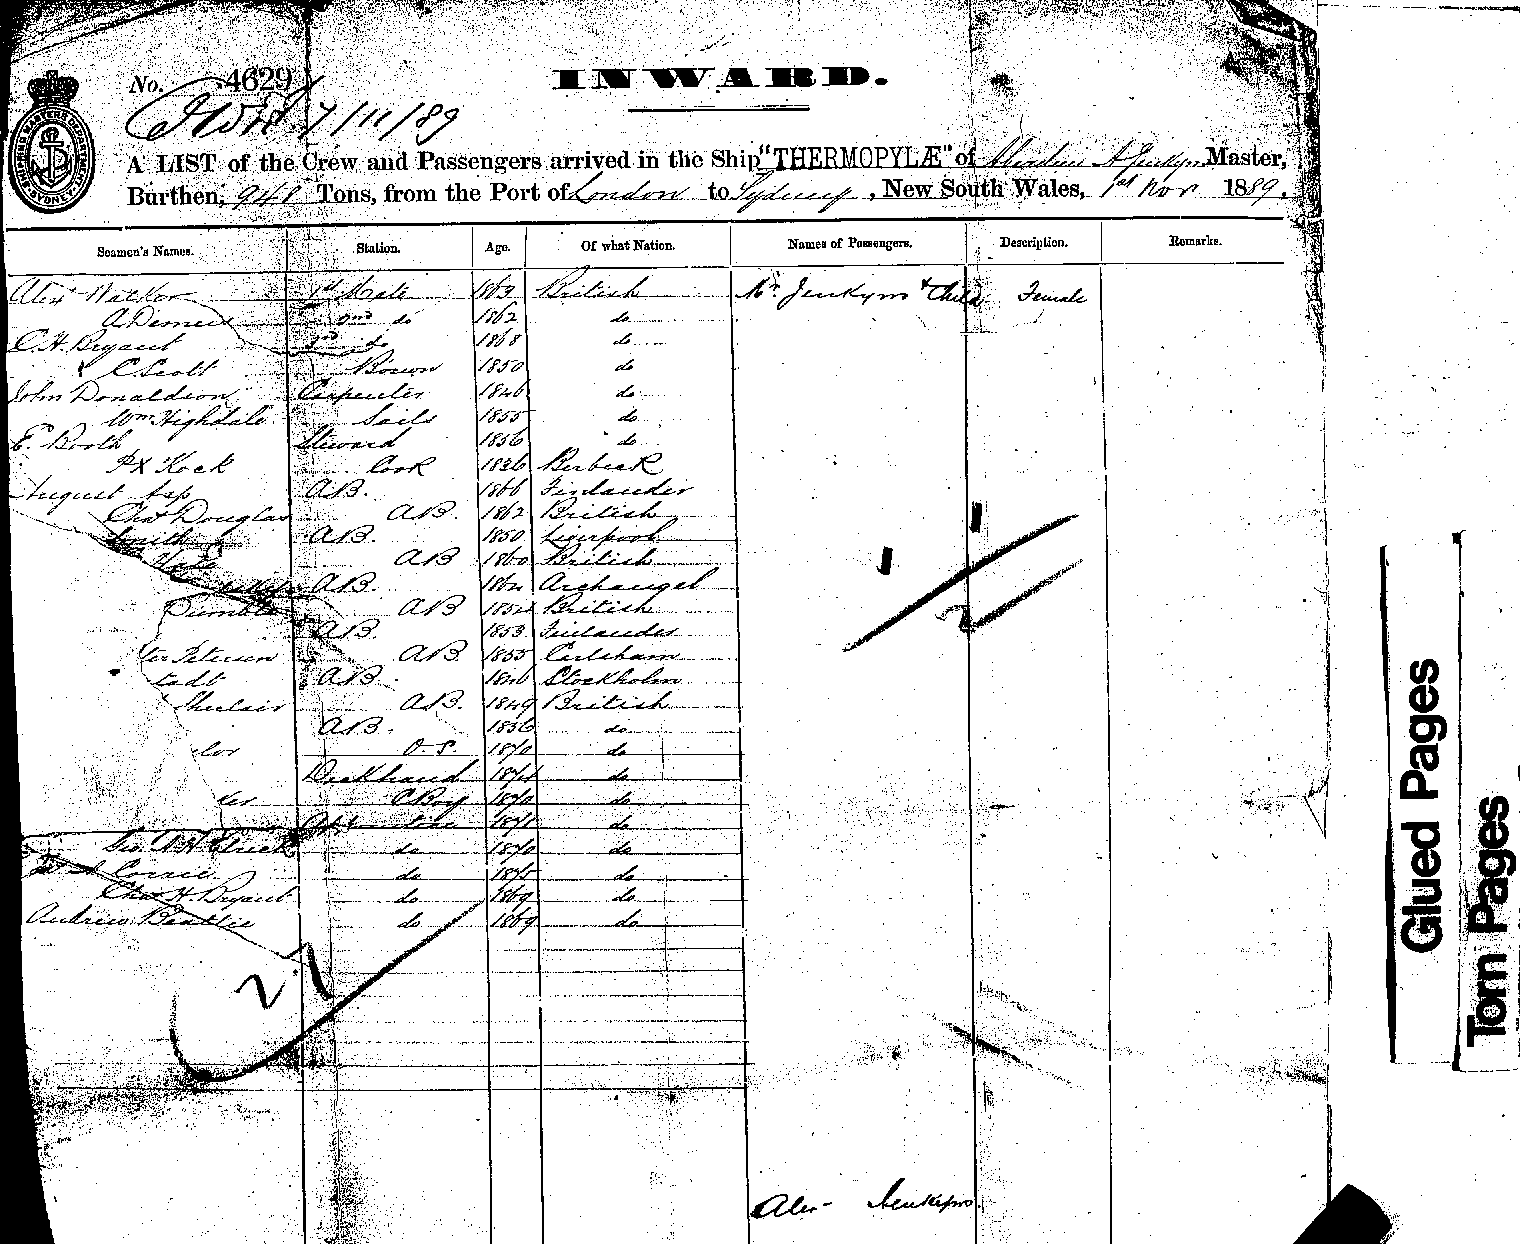 No. 4629
INWARD.
7/11/89
A LIST of the Crew and Passengers arrived in the Ship "THERMOPYLÆ" of Aberdeen A Jenkyns Master,
Burthen, 948 Tons, from the Port of London to Sydney, New South Wales, 1st Nov 1889.
Seamen's Names. Station. Age. Of what Nation. Names of Passengers. Description. Remarks.
Alexr Walker 1st Mate 1863 British Mrs Jenkyns & Child Female
2nd do 1862 do
C. H. Bryant 3rd do 1868 do
C. Scott Bosun 1850 do
John Donaldson Carpenter 1846 do
Wm Highdale Sails 1855 do
E. Booth Steward 1856 do
Kock Cook 1836
August Asp A.B. 1866 Finlander
Chas Douglas A.B. 1862 British
Smith A.B. 1850 Liverpool
A.B 1860 British
A.B. Archangel
A.B British
A.B. 1853 Finlander
ter Petersen A.B. 1855 Carlsham
tadt A.B. Stockholm
Sinclair A.B. 1849 British
A.B. 1856 do
lor O.S. 1870 do
Deckhand 1874 do
ker C Boy 1870 do
1871 do
Geo do 1870 do
do do
Chas H. Bryant do 1869 do
Andrew Beattie do 1869 do
1
1
2
27
Alex Jenkyns.
Glued Pages
Torn Pages